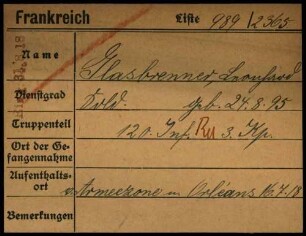 Frankreich Liste 989/2365
Name Glasbrenner, Leonhard
Dienstgrad Sold. geb. 24.8.95
Truppenteil 120. Inf. Ru 3. Kp.
Ort der Ge-
fangennahme
Aufenthalts-
ort Armeezone Orléans 16.7.18
Bemerkungen